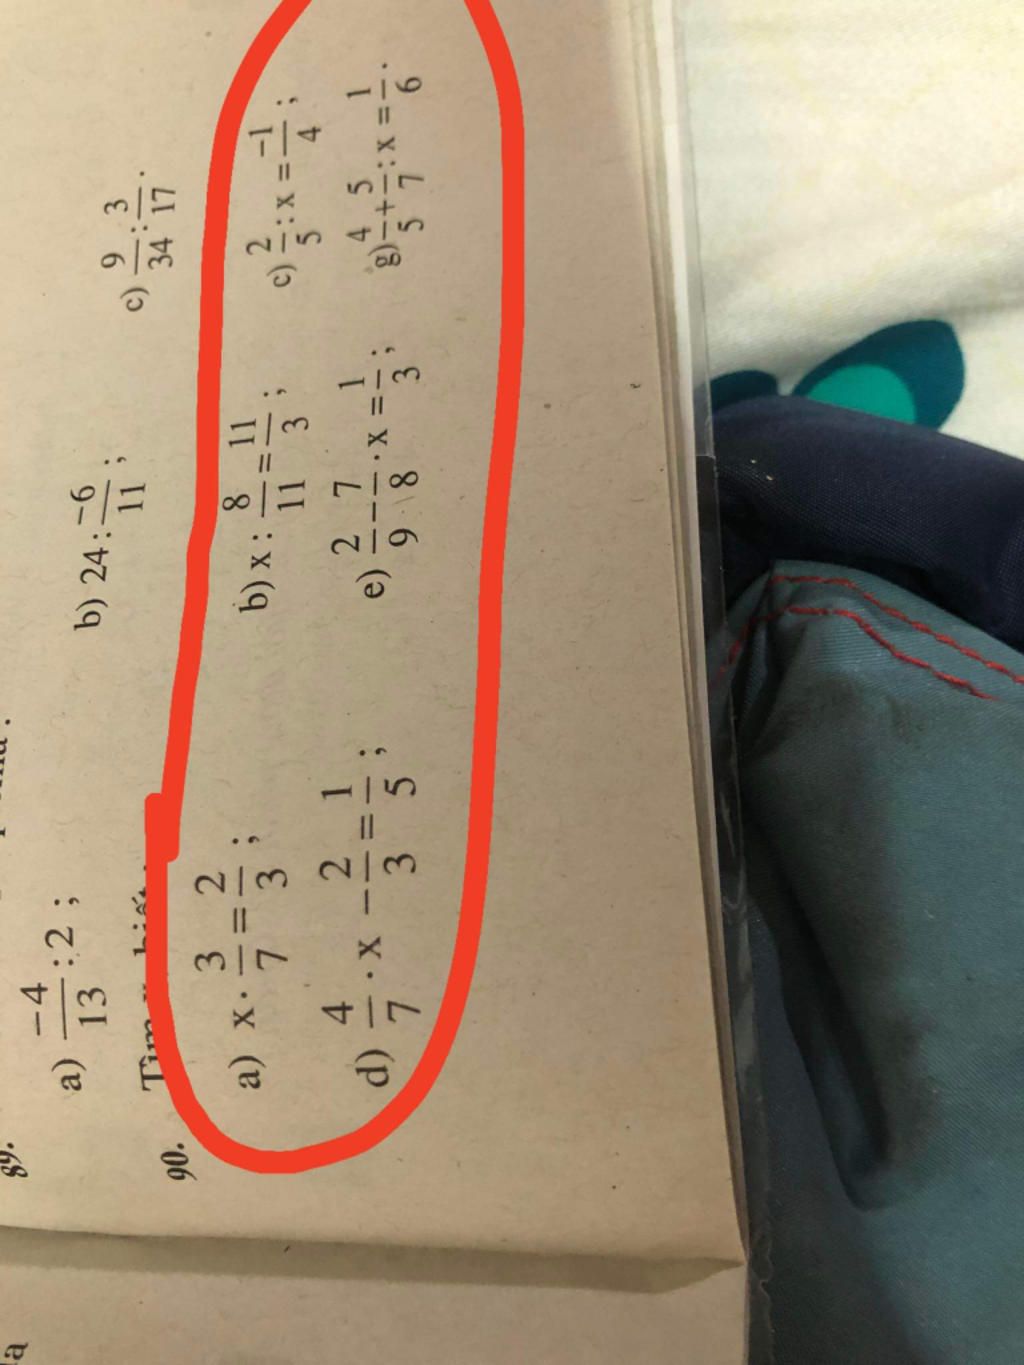 89.
a) \frac{-4}{13} : 2 ; b) 24 : \frac{-6}{11} ; c) \frac{9}{34} : \frac{3}{17} .
90. Tìm x
a) x \cdot \frac{3}{7} = \frac{2}{3} ; b) x : \frac{8}{11} = \frac{11}{3} ; c) \frac{2}{5} : x = \frac{-1}{4} ;
d) \frac{4}{7} \cdot x - \frac{2}{3} = \frac{1}{5} ; e) \frac{2}{9} - \frac{7}{8} \cdot x = \frac{1}{3} ; g) \frac{4}{5} + \frac{5}{7} : x = \frac{1}{6} .